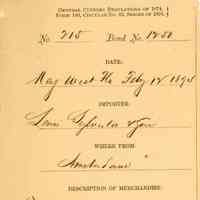 GENERAL CUSTOMS REGULATIONS OF 1874,
FORM 160, CIRCULAR NO. 92, SERIES OF 1891.
No. 215 Bond No. 1250
DATE:
Key West Fla Feby 12 1894
IMPORTER:
Louis Sylvester & Son
WHERE FROM
Amsterdam
DESCRIPTION OF MERCHANDISE: